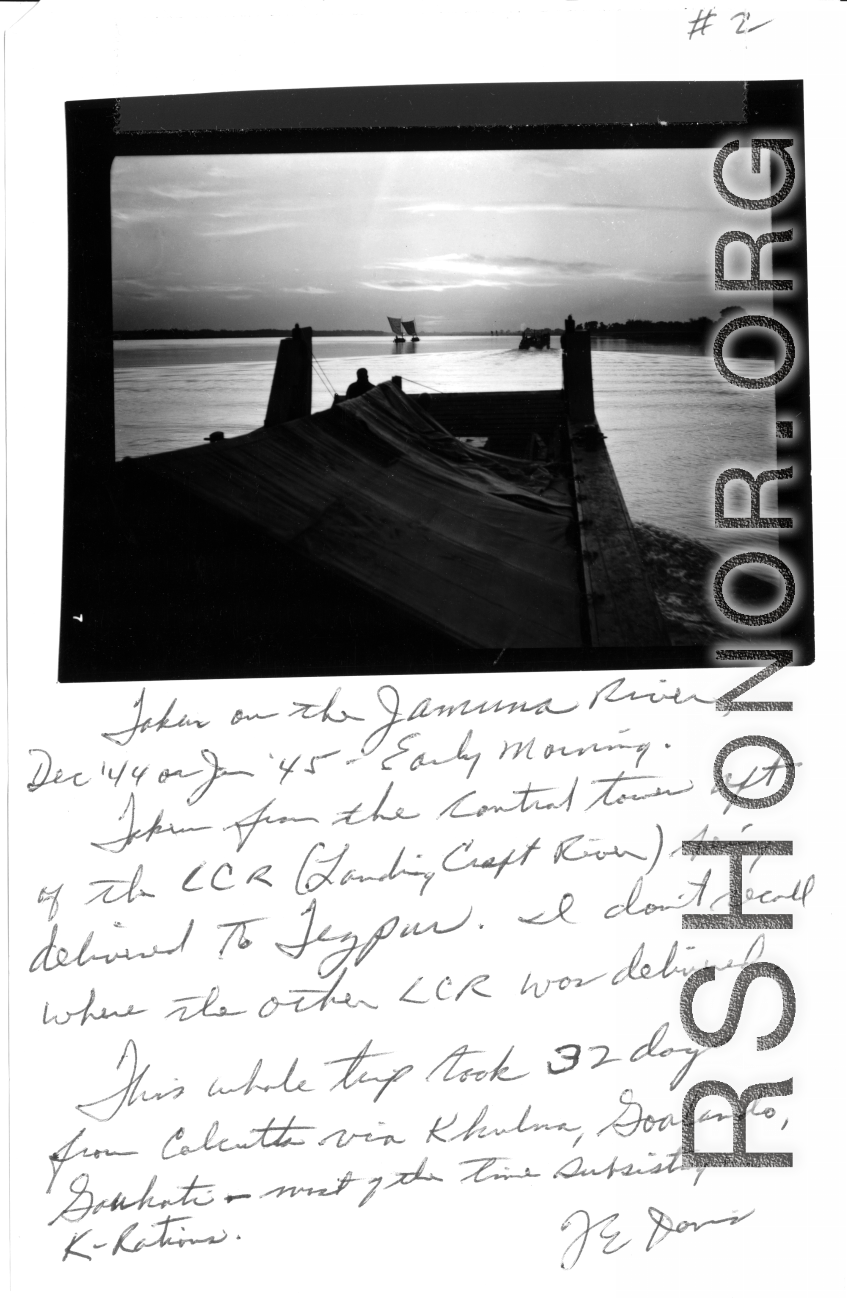 # 2
Taken on the Jamuna River,
Dec '44 or Jan '45 - Early Morning.
Taken from the control tower aft
of the LCR (Landing Craft River) being
delivered to Tezpur. I don't recall
where the other LCR was delivered
This whole trip took 32 days
from Calcutta via Khulna, Goalando,
Gauhati - most of the time subsisting
K-Rations.
J E Davis
RSHONOR.ORG
7